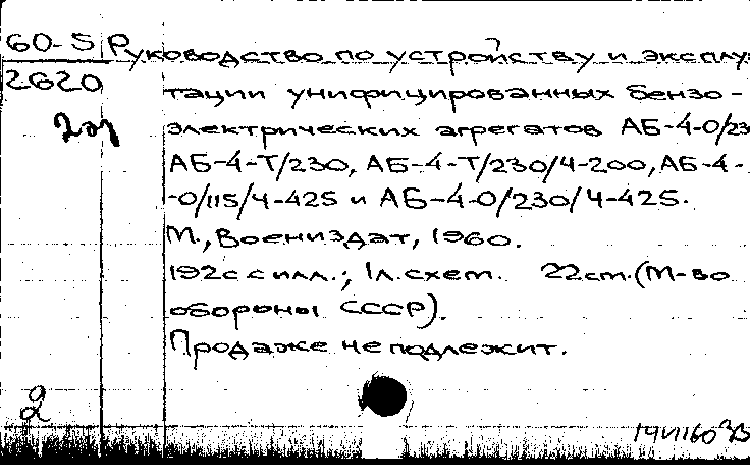 60-5 Руководство по устройству и эксплу
2620 тации унифицированных бензо-
электрических агрегатов АБ-4-О/23
АБ-4-Т/230, АБ-4-Т/230/Ч-200, АБ-4-
-О/115/Ч-425 и АБ-4-О/230/Ч-425.
М., Воениздат, 1960.
192с с илл.; 1л. схем. 22cm. (М-во
обороны СССР).
Продаже не подлежит.
2